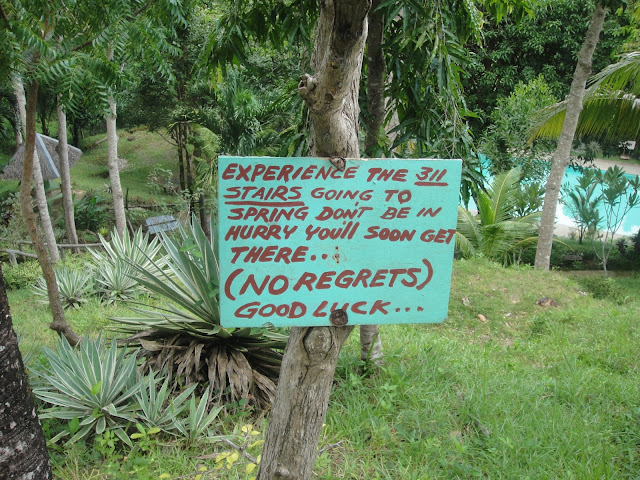 EXPERIENCE THE 311
STAIRS GOING TO
SPRING DON'T BE IN
HURRY YOU'll SOON GET
THERE...
(NO REGRETS)
GOOD LUCK...